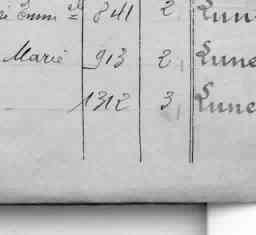 Emm^el 841 2 Lune
Marie 913 2, Lune
1312 3, Lune